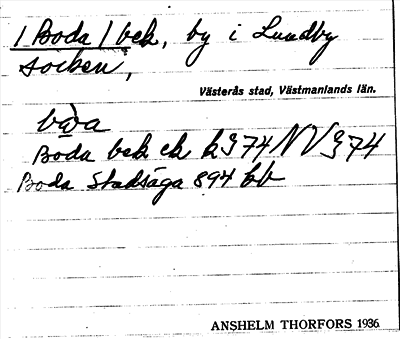 / Boda / bek, by i Lundby
socken,
Västerås stad, Västmanlands län.
bơda
Boda bek ek kg 74 NV g 74
Boda Stadsäga 894 bb
ANSHELM THORFORS 1936.